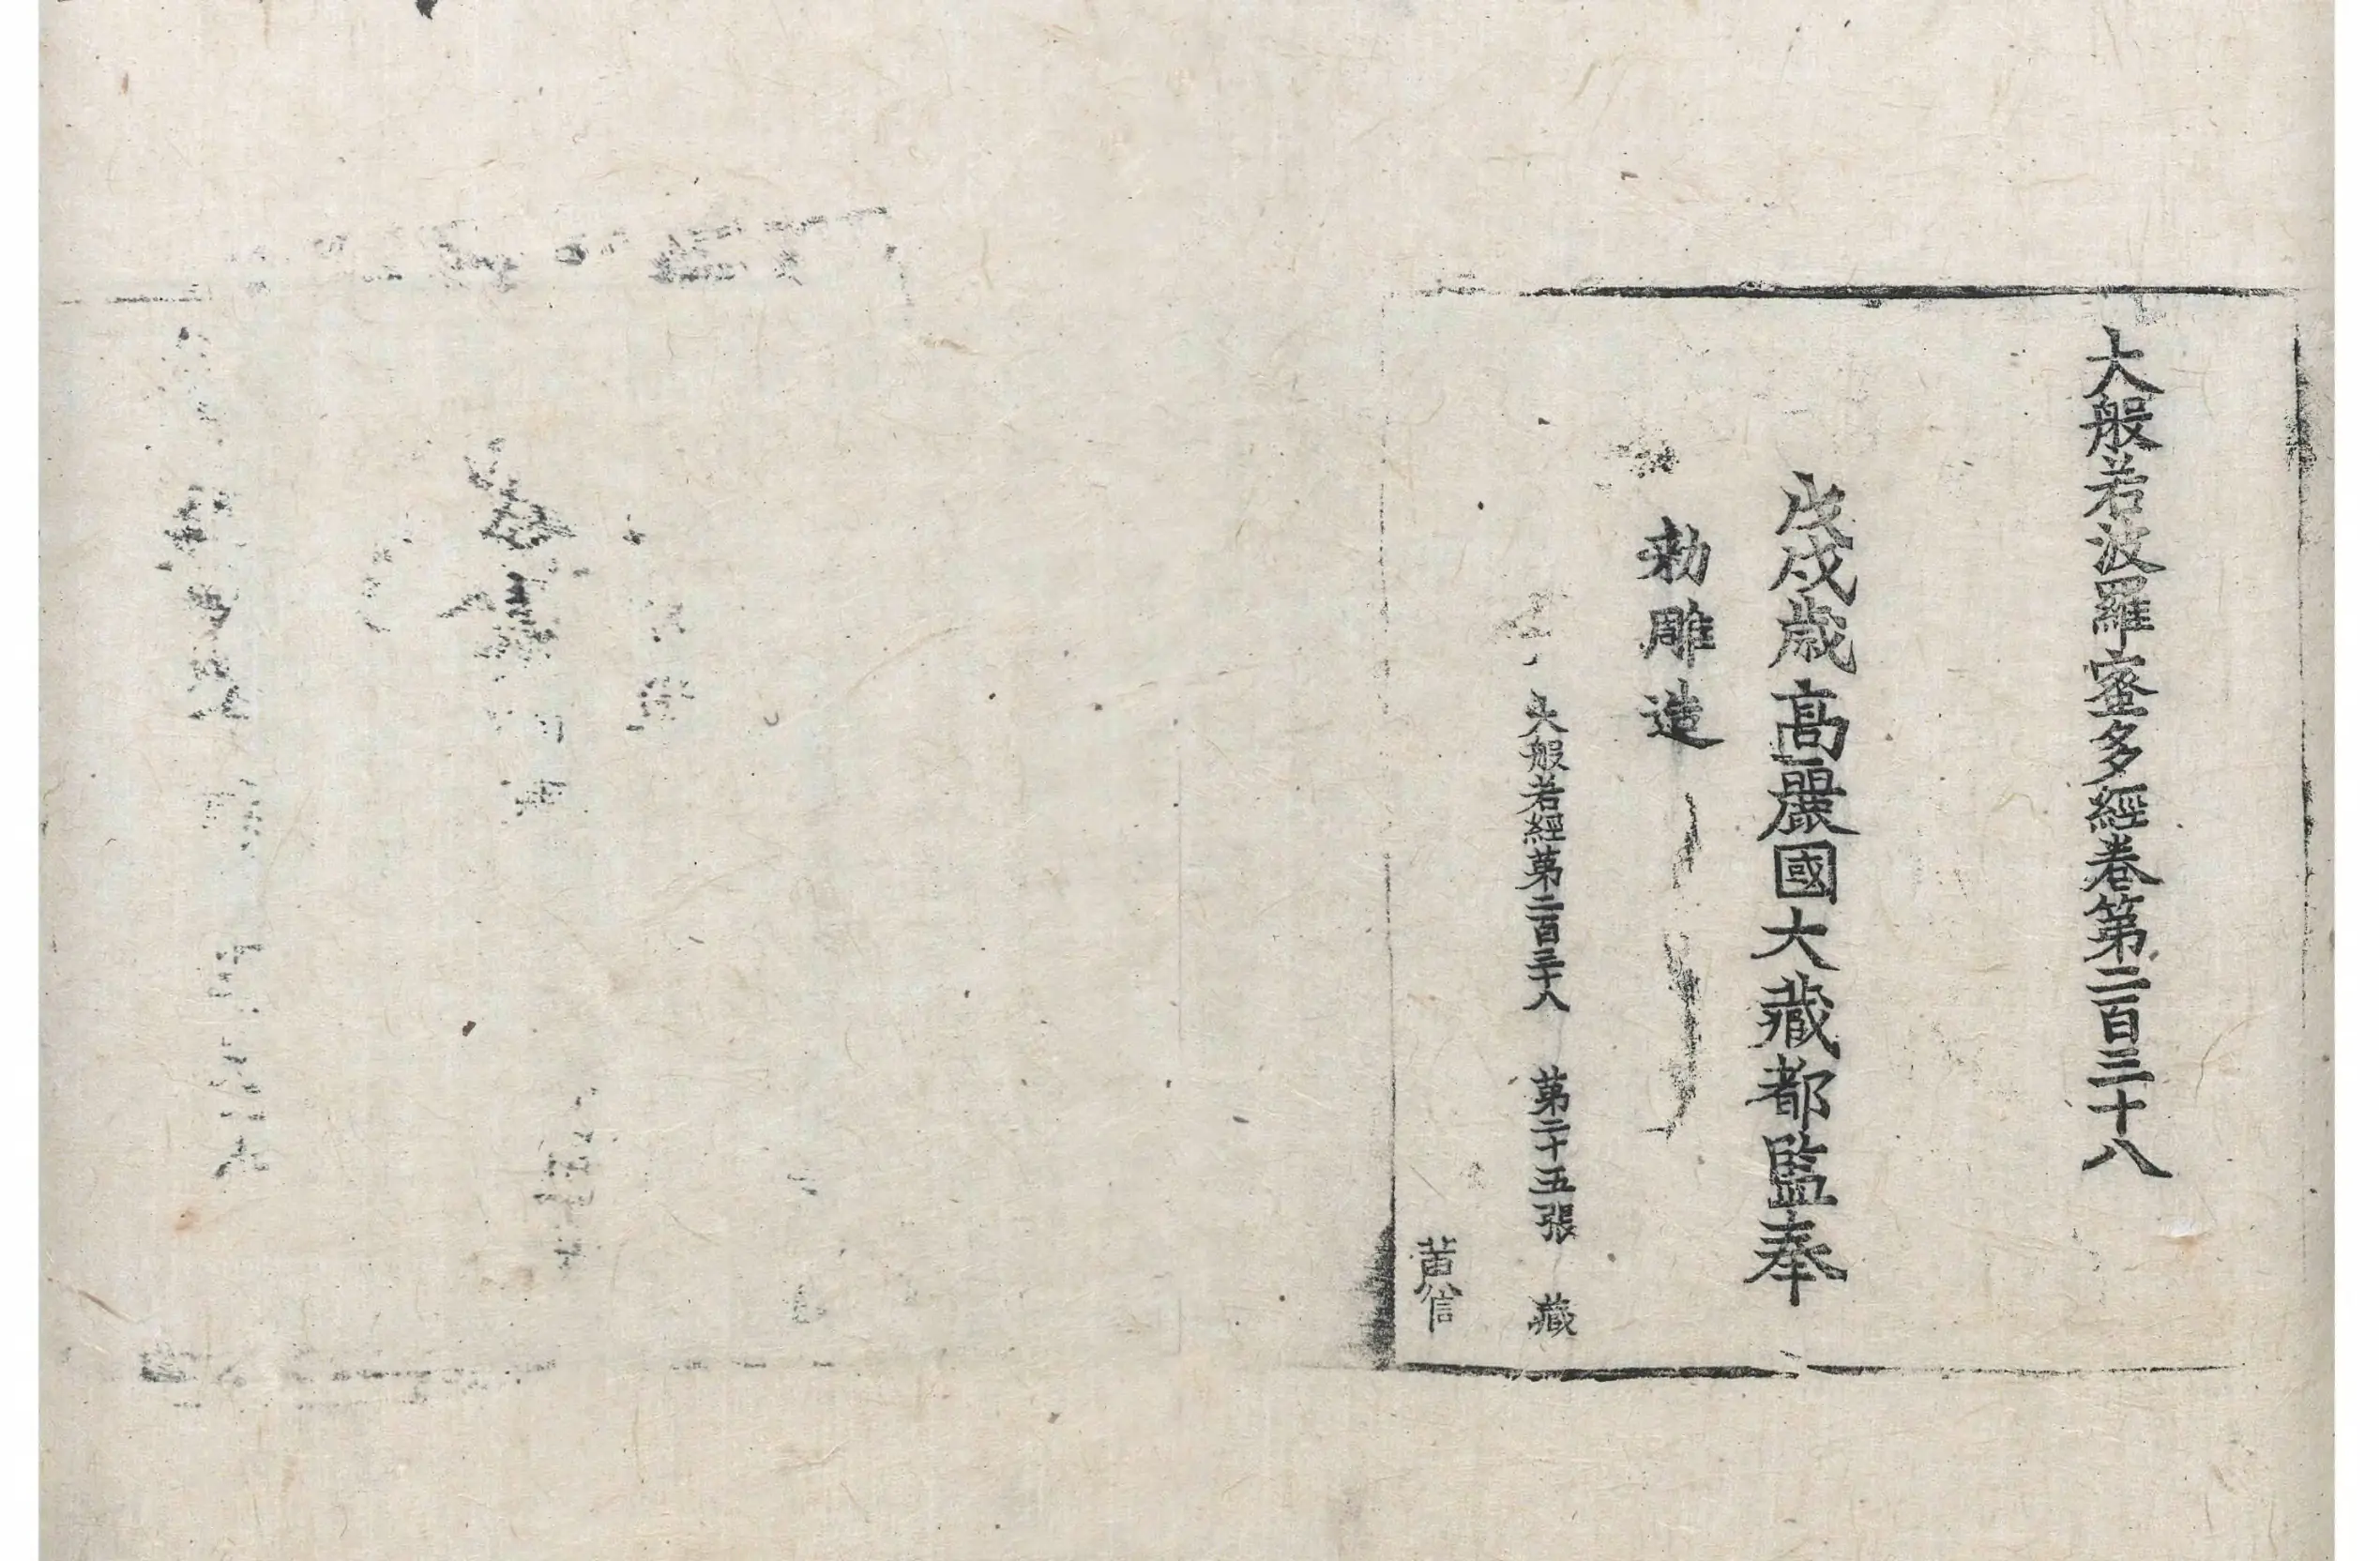 大般若波羅蜜多經卷第二百三十八
戊戌歲高麗國大藏都監奉
勅雕造
大般若經第二百三十八 第二十五張 藏